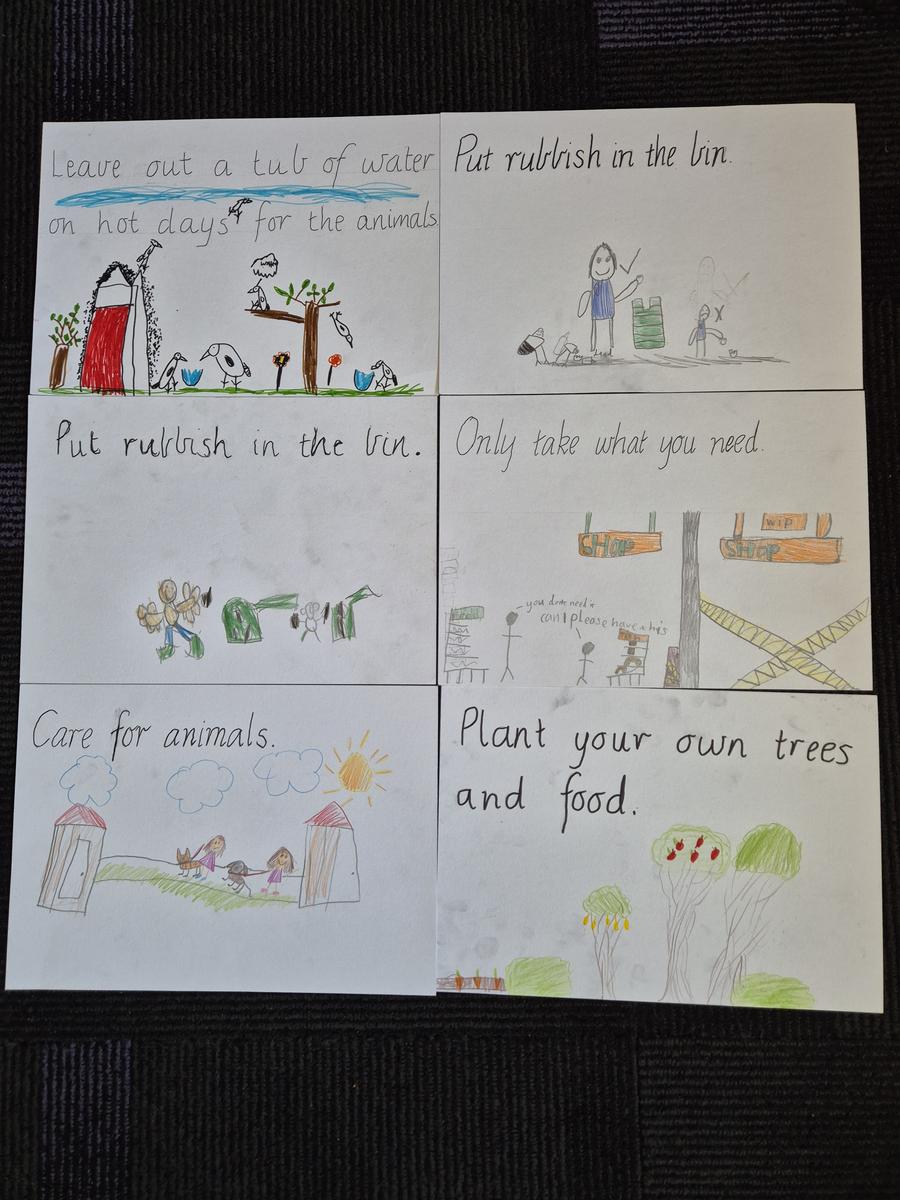 Leave out a tub of water
on hot days for the animals
Put rubbish in the bin.
Put rubbish in the bin.
Only take what you need.
SHOP
WIP
SHOP
you dont need it
can I please have this
Care for animals.
Plant your own trees
and food.